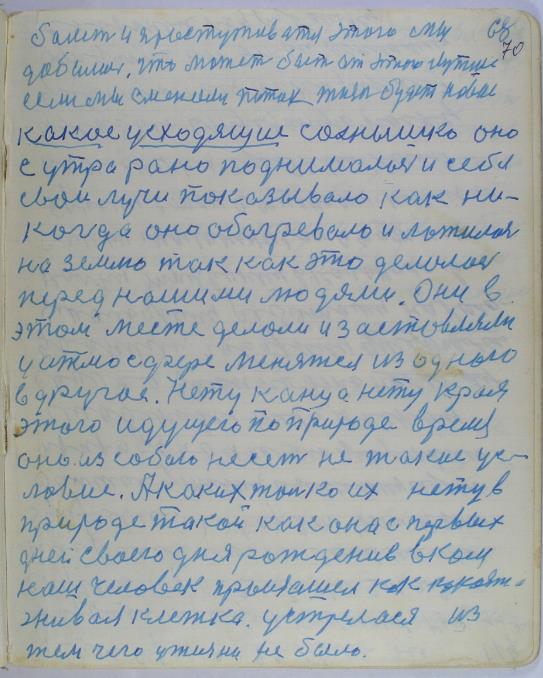 болет и простуживатся этого мы 68
добилис, что может быт от этого лутшие 70
если мы сменели поток тяги будет новые
какое усходящие солнышко оно
с утра рано поднималося и себя
свои лучи показывало как ни-
когда оно обогревало и ложилося
на землю так как это делолося
перед нашими людями. Они в
этом месте делоли и застовляли
у атмосфере менятся из одного
в другое. Нету канца нету края
этого идущего по природе время
оно из собою несет не такие ус-
ловие. А каких толко их нету в
природе такой как она с первых
дней своего дня рождения в ком
наш человек как
живая клетка. устрелася из
тем чего у жизни не было.